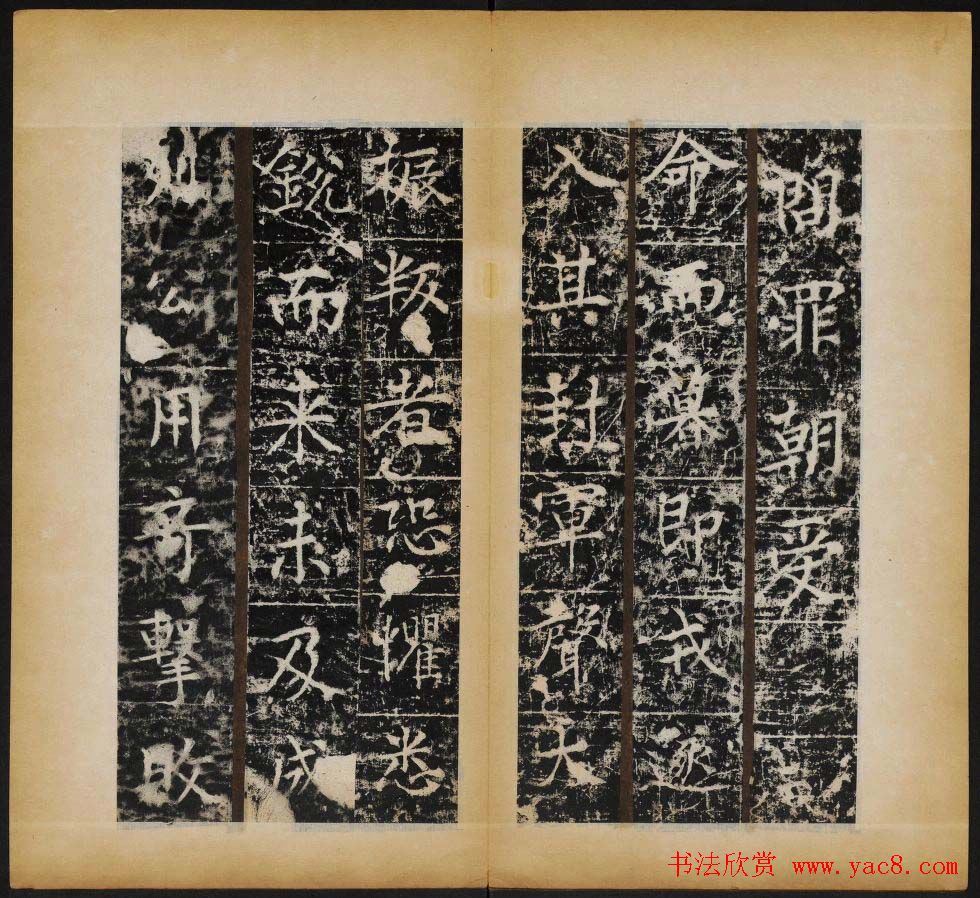 問罪朝受
命而暮即戎遂
入其封軍聲大
振叛者恐懼悉
銳而来未及成
列公用奇擊敗
书法欣赏 www.yac8.com